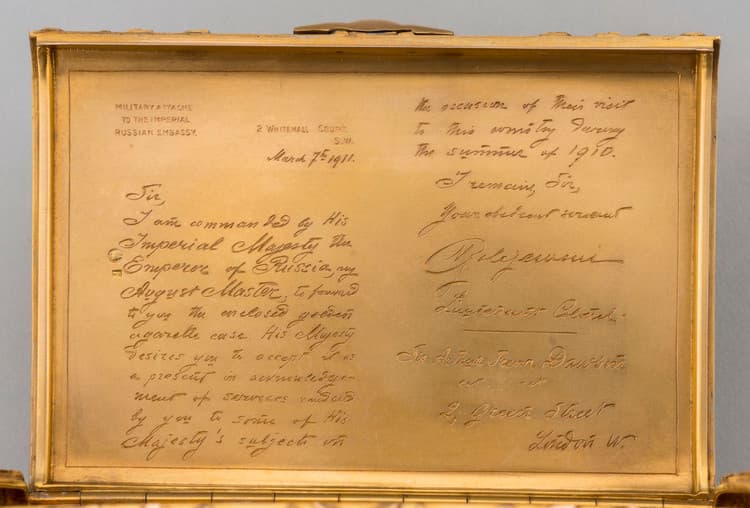 MILITARY ATTACHÉ
TO THE IMPERIAL
RUSSIAN EMBASSY.
2 WHITEHALL COURT,
S.W.
March 7th 1911.
Sir,
I am commanded by His
Imperial Majesty the
Emperor of Russia, my
August Master, to forward
to you the enclosed golden
cigarette case His Majesty
desires you to accept it as
a present in acknowledge-
ment of services rendered
by you to some of His
Majesty's subjects on
the occasion of their visit
to this country during
the summer of 1910.
I remain, Sir,
Your obedient servant
Lieutenant Colonel.
Sir
2, Green Street
London W.